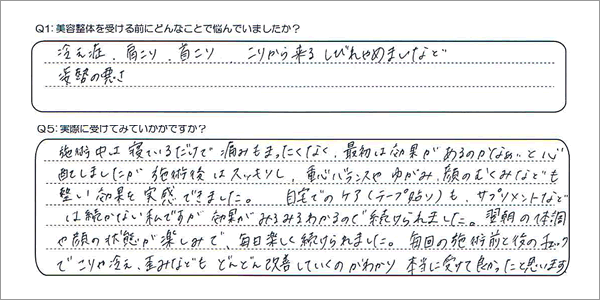 Q1：美容整体を受ける前にどんなことで悩んでいましたか？
冷え症、肩こり、首こり、こりから来るしびれやめまいなど
姿勢の悪さ
Q5：実際に受けてみていかがですか？
施術中は寝ているだけで痛みもまったくなく、最初は効果があるのかなぁ…と心
配してしましたが施術後はスッキリし、重心バランスやゆがみ、顔のむくみなども
整い効果を実感できました。自宅でのケア（テープ貼り）も、サプリメントなど
は続かない私ですが効果がみるみるわかるので続けられました。翌朝の体調
や顔の状態が楽しみで、毎日楽しく続けられました。毎回の施術前と後のチェック
でこりや冷え、歪みなどもどんどん改善していくのがわかり本当に受けて良かったと思います